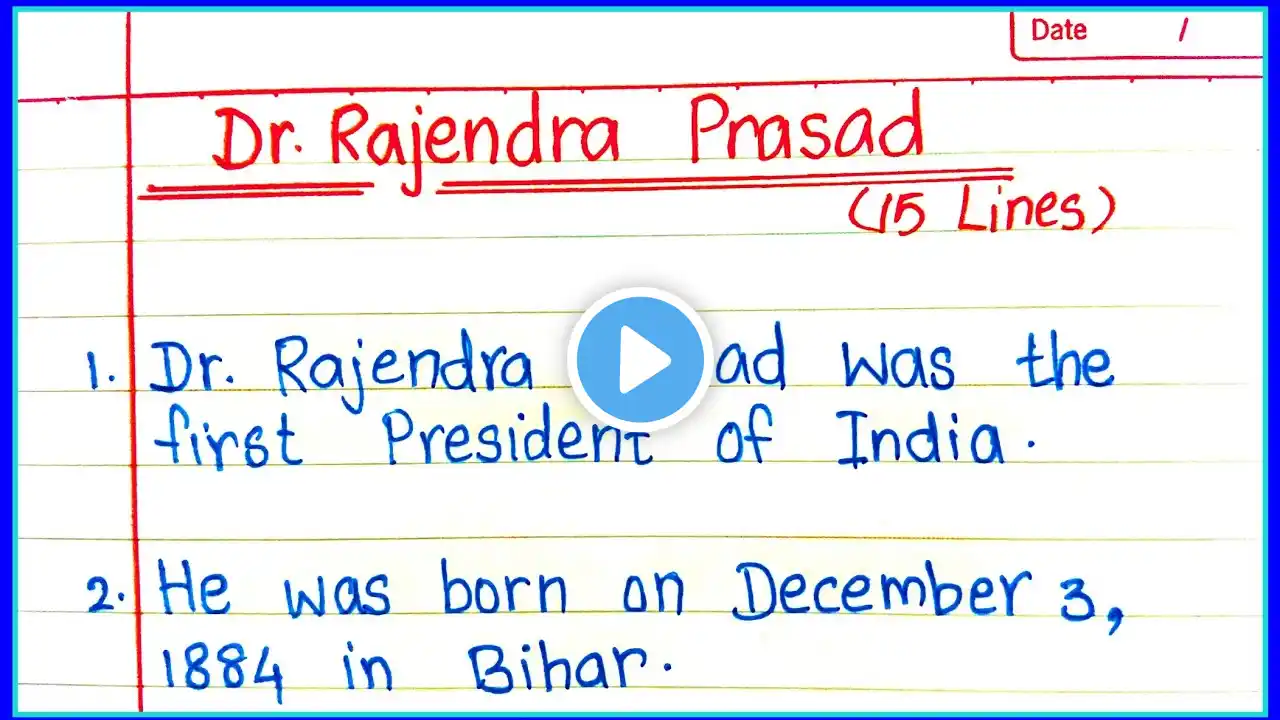 Date /
Dr. Rajendra Prasad
(15 Lines)
1. Dr. Rajendra ad was the
first President of India.
2. He was born on December 3,
1884 in Bihar.